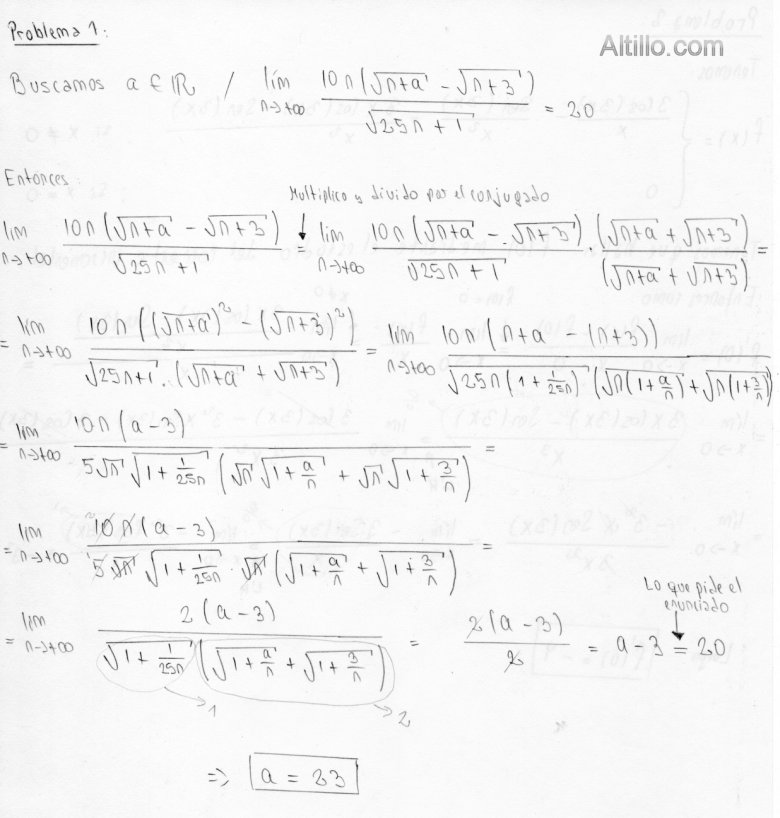 Problema 1:
Altillo.com
Buscamos a ∈ ℝ / lím n→+∞ 10n(√(n+a) - √(n+3)) / √(25n+1) = 20
Entonces:
Multiplico y divido por el conjugado
lím n→+∞ 10n(√(n+a) - √(n+3)) / √(25n+1) = lím n→+∞ 10n(√(n+a) - √(n+3)) / √(25n+1) · (√(n+a) + √(n+3)) / (√(n+a) + √(n+3)) =
= lím n→+∞ 10n((√(n+a))² - (√(n+3))²) / √(25n+1) · (√(n+a) + √(n+3)) = lím n→+∞ 10n(n+a - (n+3)) / √(25n(1+1/25n)) (√(n(1+a/n)) + √(n(1+3/n)))
= lím n→+∞ 10n(a-3) / 5√n √(1+1/25n) (√n √(1+a/n) + √n √(1+3/n)) =
= lím n→+∞ ²10n(a-3) / ¹5√n √(1+1/25n) · √n (√(1+a/n) + √(1+3/n)) =
Lo que pide el
enunciado
= lím n→+∞ 2(a-3) / √(1+1/25n) (√(1+a/n) + √(1+3/n)) = 2(a-3) / 2 = a-3 = 20
1
2
⇒ a = 23